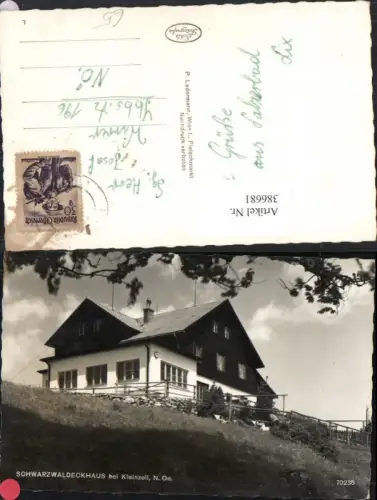 Grüße
aus Salzerbad
Sg. Herr
Josef
Ybbsitz 196
NÖ.
P. Ledermann, Wien I., Fleischmarkt
Nachdruck verboten
REPUBLIK ÖSTERREICH
30
Artikel Nr.
386681
SCHWARZWALDECKHAUS bei Kleinzell, N. Oe.
70235